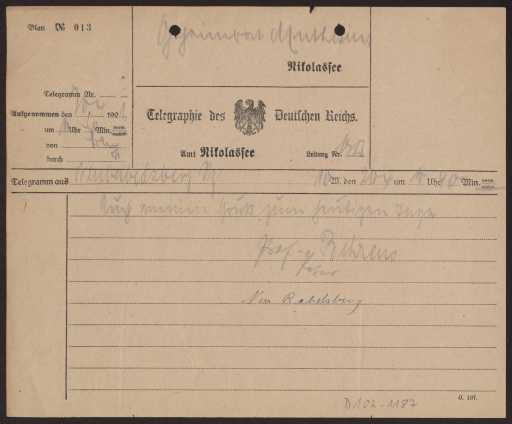 Blatt № 013
Geheimrat Muthesius
Nikolassee
Telegramm Nr.
Aufgenommen den
um Uhr Min.
von
durch
Telegraphie des Deutschen Reichs.
Amt Nikolassee
Leitung Nr.
Telegramm aus Neubabelsberg 10 W. den 20/4 um Uhr 40 Min.
Auch meinen Gruß zum heutigen Tage
Prof. Behrens
Neu Babelsberg
C. 187.
D 102-1187